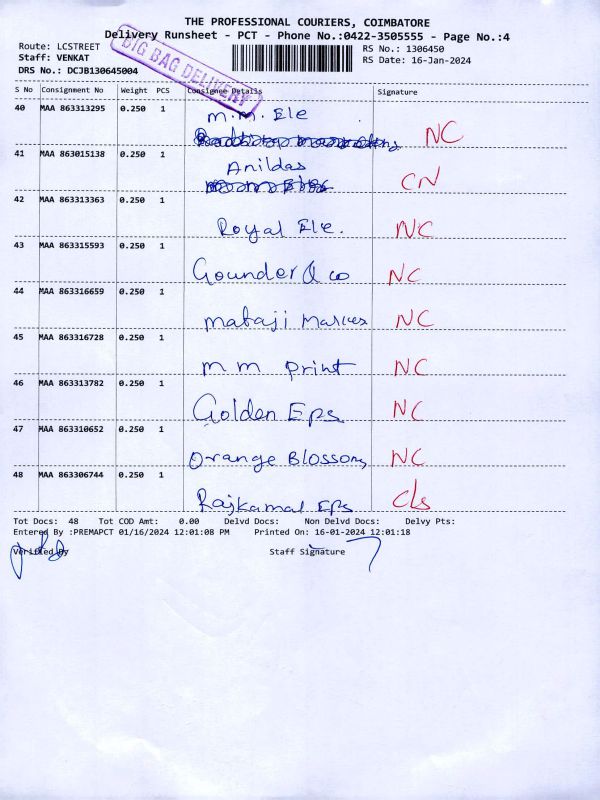 THE PROFESSIONAL COURIERS, COIMBATORE
Delivery Runsheet - PCT - Phone No.:0422-3505555 - Page No.:4
Route: LCSTREET RS No.: 1306450
Staff: VENKAT RS Date: 16-Jan-2024
DRS No.: DCJB130645004
BIG BAG DELIVERY
S No Consignment No Weight PCS Consignee Details Signature
40 MAA 863313295 0.250 1 M.M. Ele NC
41 MAA 863015138 0.250 1 Anildas CN
42 MAA 863313363 0.250 1 Royal Ele. NC
43 MAA 863315593 0.250 1 Gounder & co NC
44 MAA 863316659 0.250 1 mataji NC
45 MAA 863316728 0.250 1 m m print NC
46 MAA 863313782 0.250 1 Golden Eps NC
47 MAA 863310652 0.250 1 Orange Blossoms NC
48 MAA 863306744 0.250 1 Rajkamal Eps Cls
Tot Docs: 48 Tot COD Amt: 0.00 Delvd Docs: Non Delvd Docs: Delvy Pts:
Entered By :PREMAPCT 01/16/2024 12:01:08 PM Printed On: 16-01-2024 12:01:18
Verified By Staff Signature